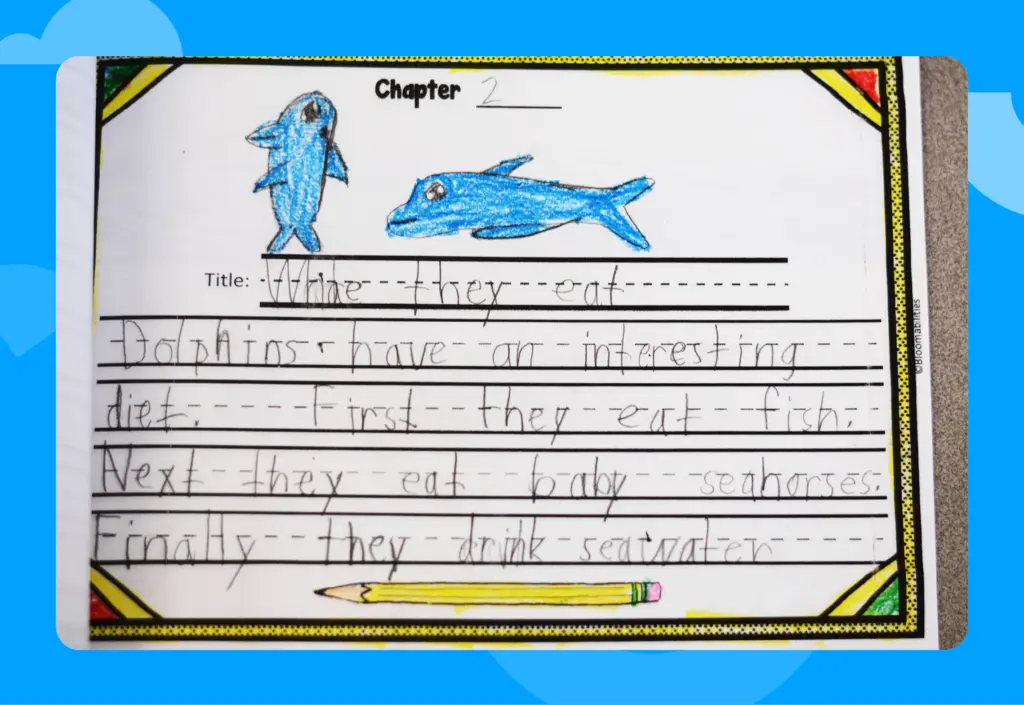 Chapter 2
Title: they eat
Dolphins have an interesting
diet. First they eat fish.
Next they eat baby seahorses.
Finally they drink seatwater
©Bloomabilities